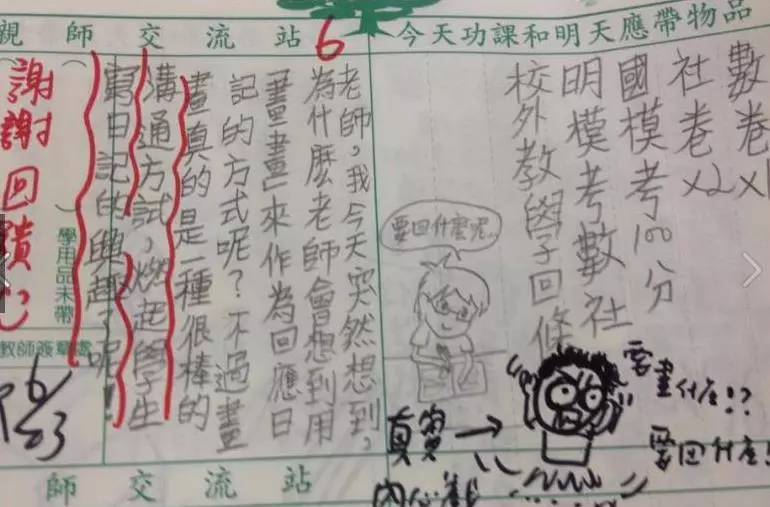 親師交流站
6
今天功課和明天應帶物品
數卷x1
社卷x2
國模考100分
明模考數社
校外教學回條
老師，我今天突然想到，
為什麼老師會想到用
「畫畫」來作為回應日
記的方式呢？不過畫
畫真的是一種很棒的
溝通方試，燃起學生
寫日記的興趣了呢！
謝謝回饋
學用品未帶
教師簽章處
6/3
要回什麼呢..
要畫什麼!?
要回什麼!
真實→
內心戲
師交流站